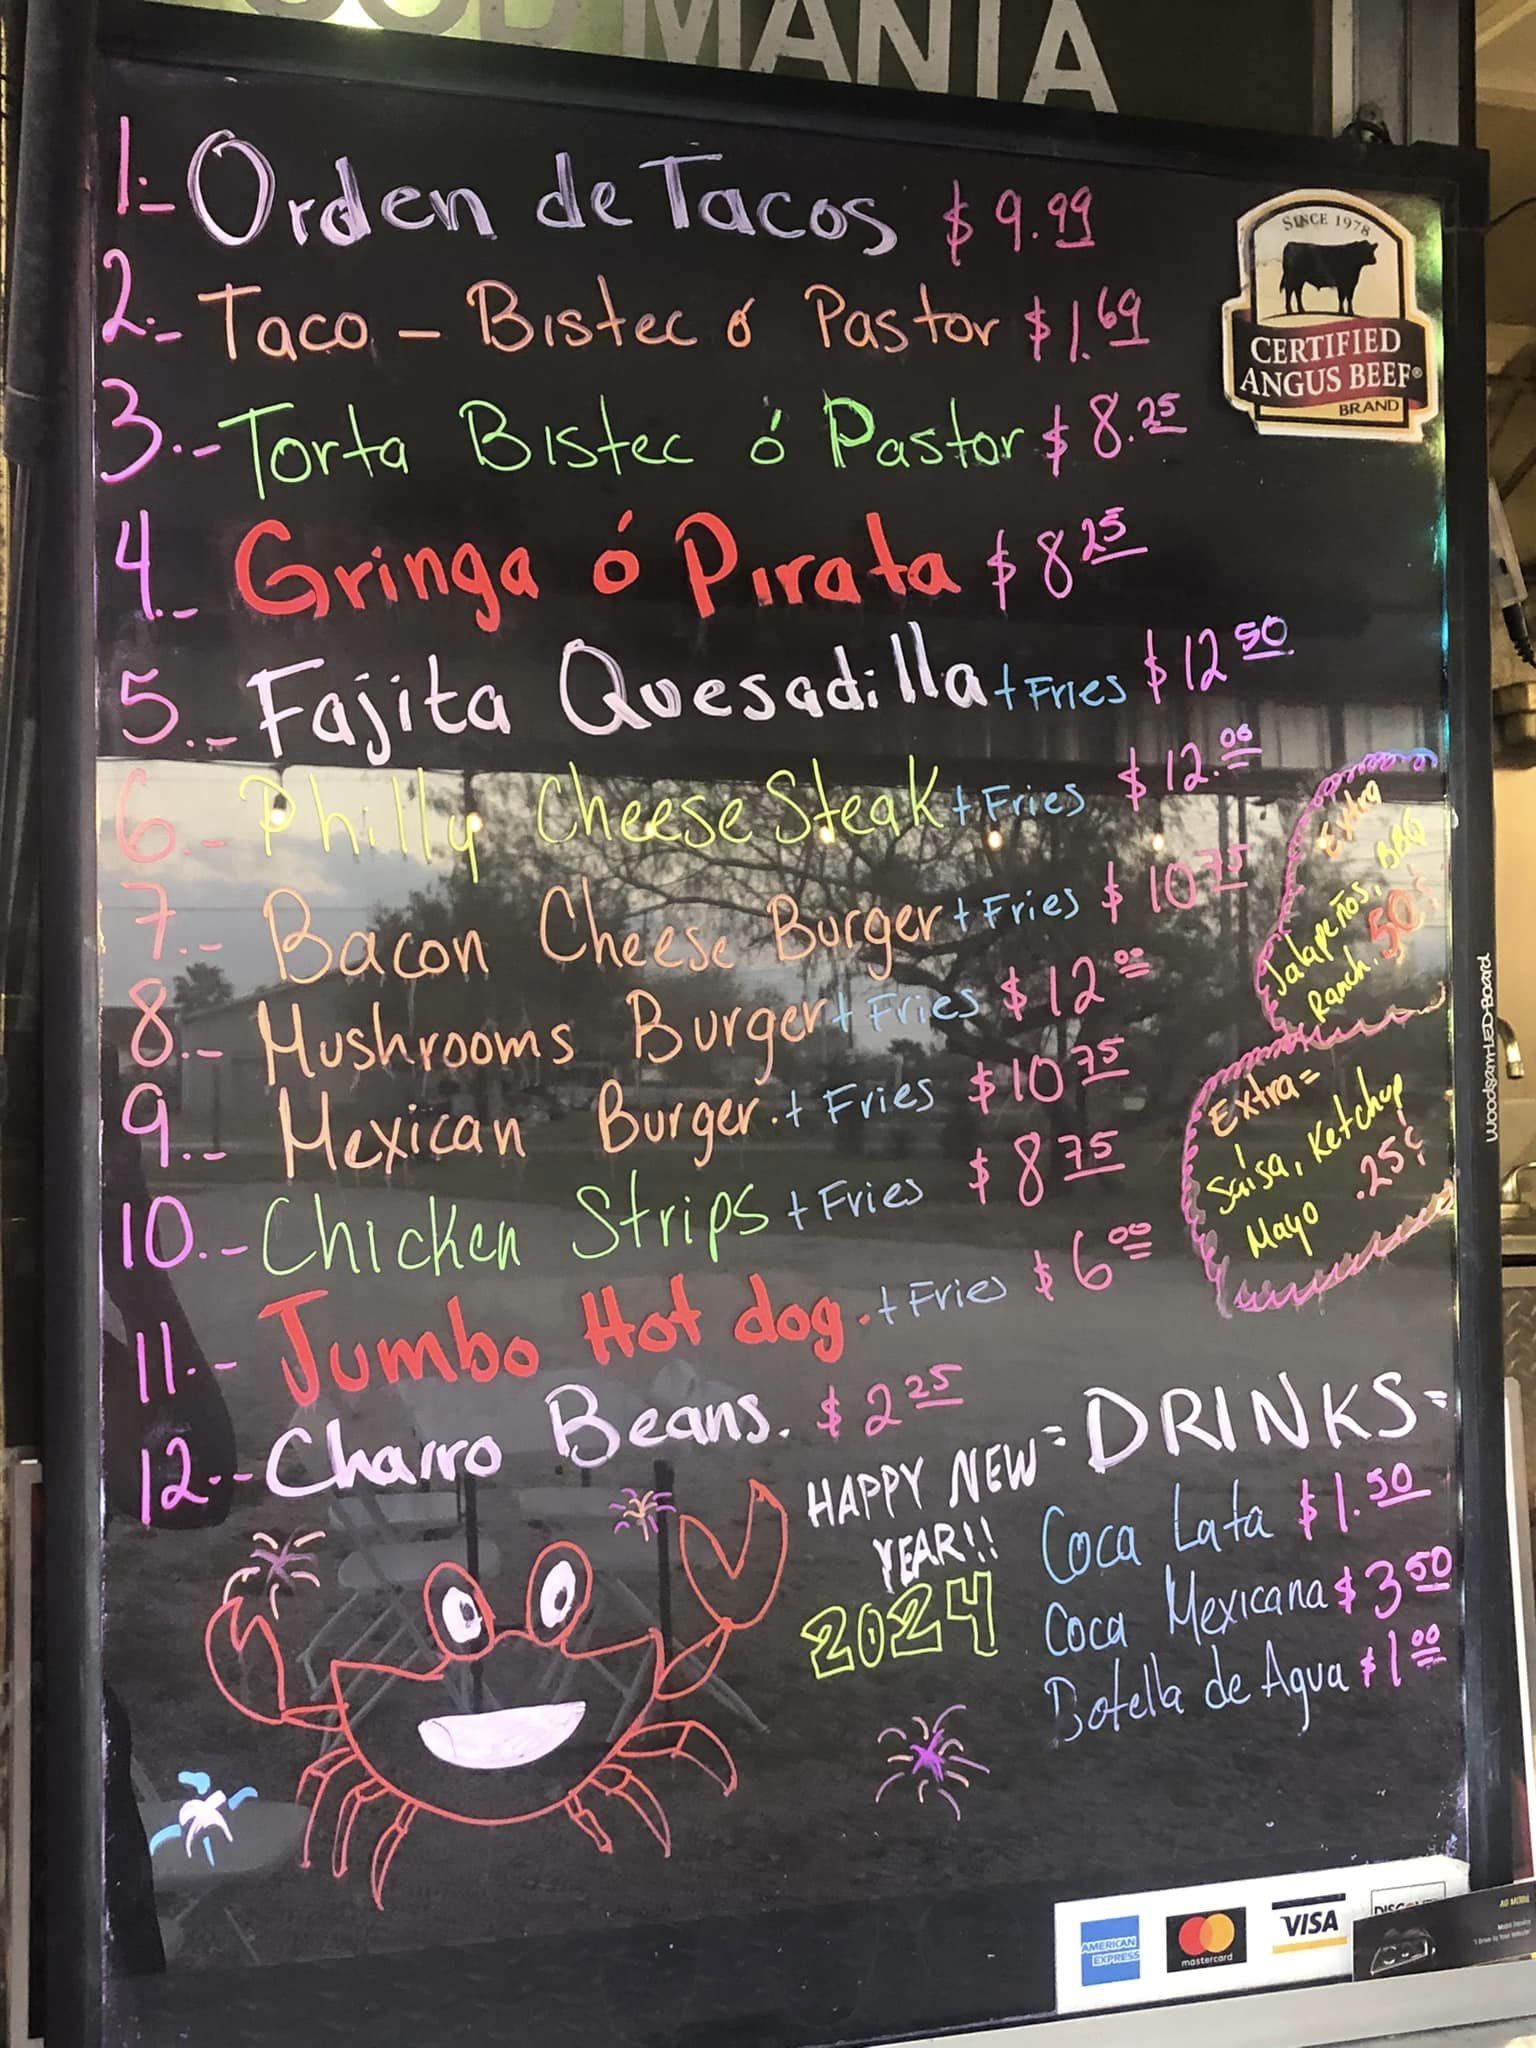 OOD MANIA
1.- Orden de Tacos $9.99
2.- Taco - Bistec ó Pastor $1.69
3.- Torta Bistec ó Pastor $8.25
4.- Gringa ó Pirata $8 25
5.- Fajita Quesadilla + Fries $12 50
6.- Philly Cheese Steak + Fries $12.00
7.- Bacon Cheese Burger + Fries $10 75
8.- Mushrooms Burger + Fries $12 00
9.- Mexican Burger. + Fries $10 75
10.- Chicken Strips + Fries $8 75
11.- Jumbo Hot dog. + Fries $6 00
12.- Charro Beans. $2 25
SINCE 1978
CERTIFIED
ANGUS BEEF®
BRAND
Extra
Jalapeños, BBQ
Ranch. 50¢
Extra=
Salsa, Ketchup
Mayo .25¢
WoodsamLEDBoard
HAPPY NEW
YEAR!!
2024
=DRINKS=
Coca Lata $1.50
Coca Mexicana $3 50
Botella de Agua $1 00
AMERICAN
EXPRESS
mastercard
VISA